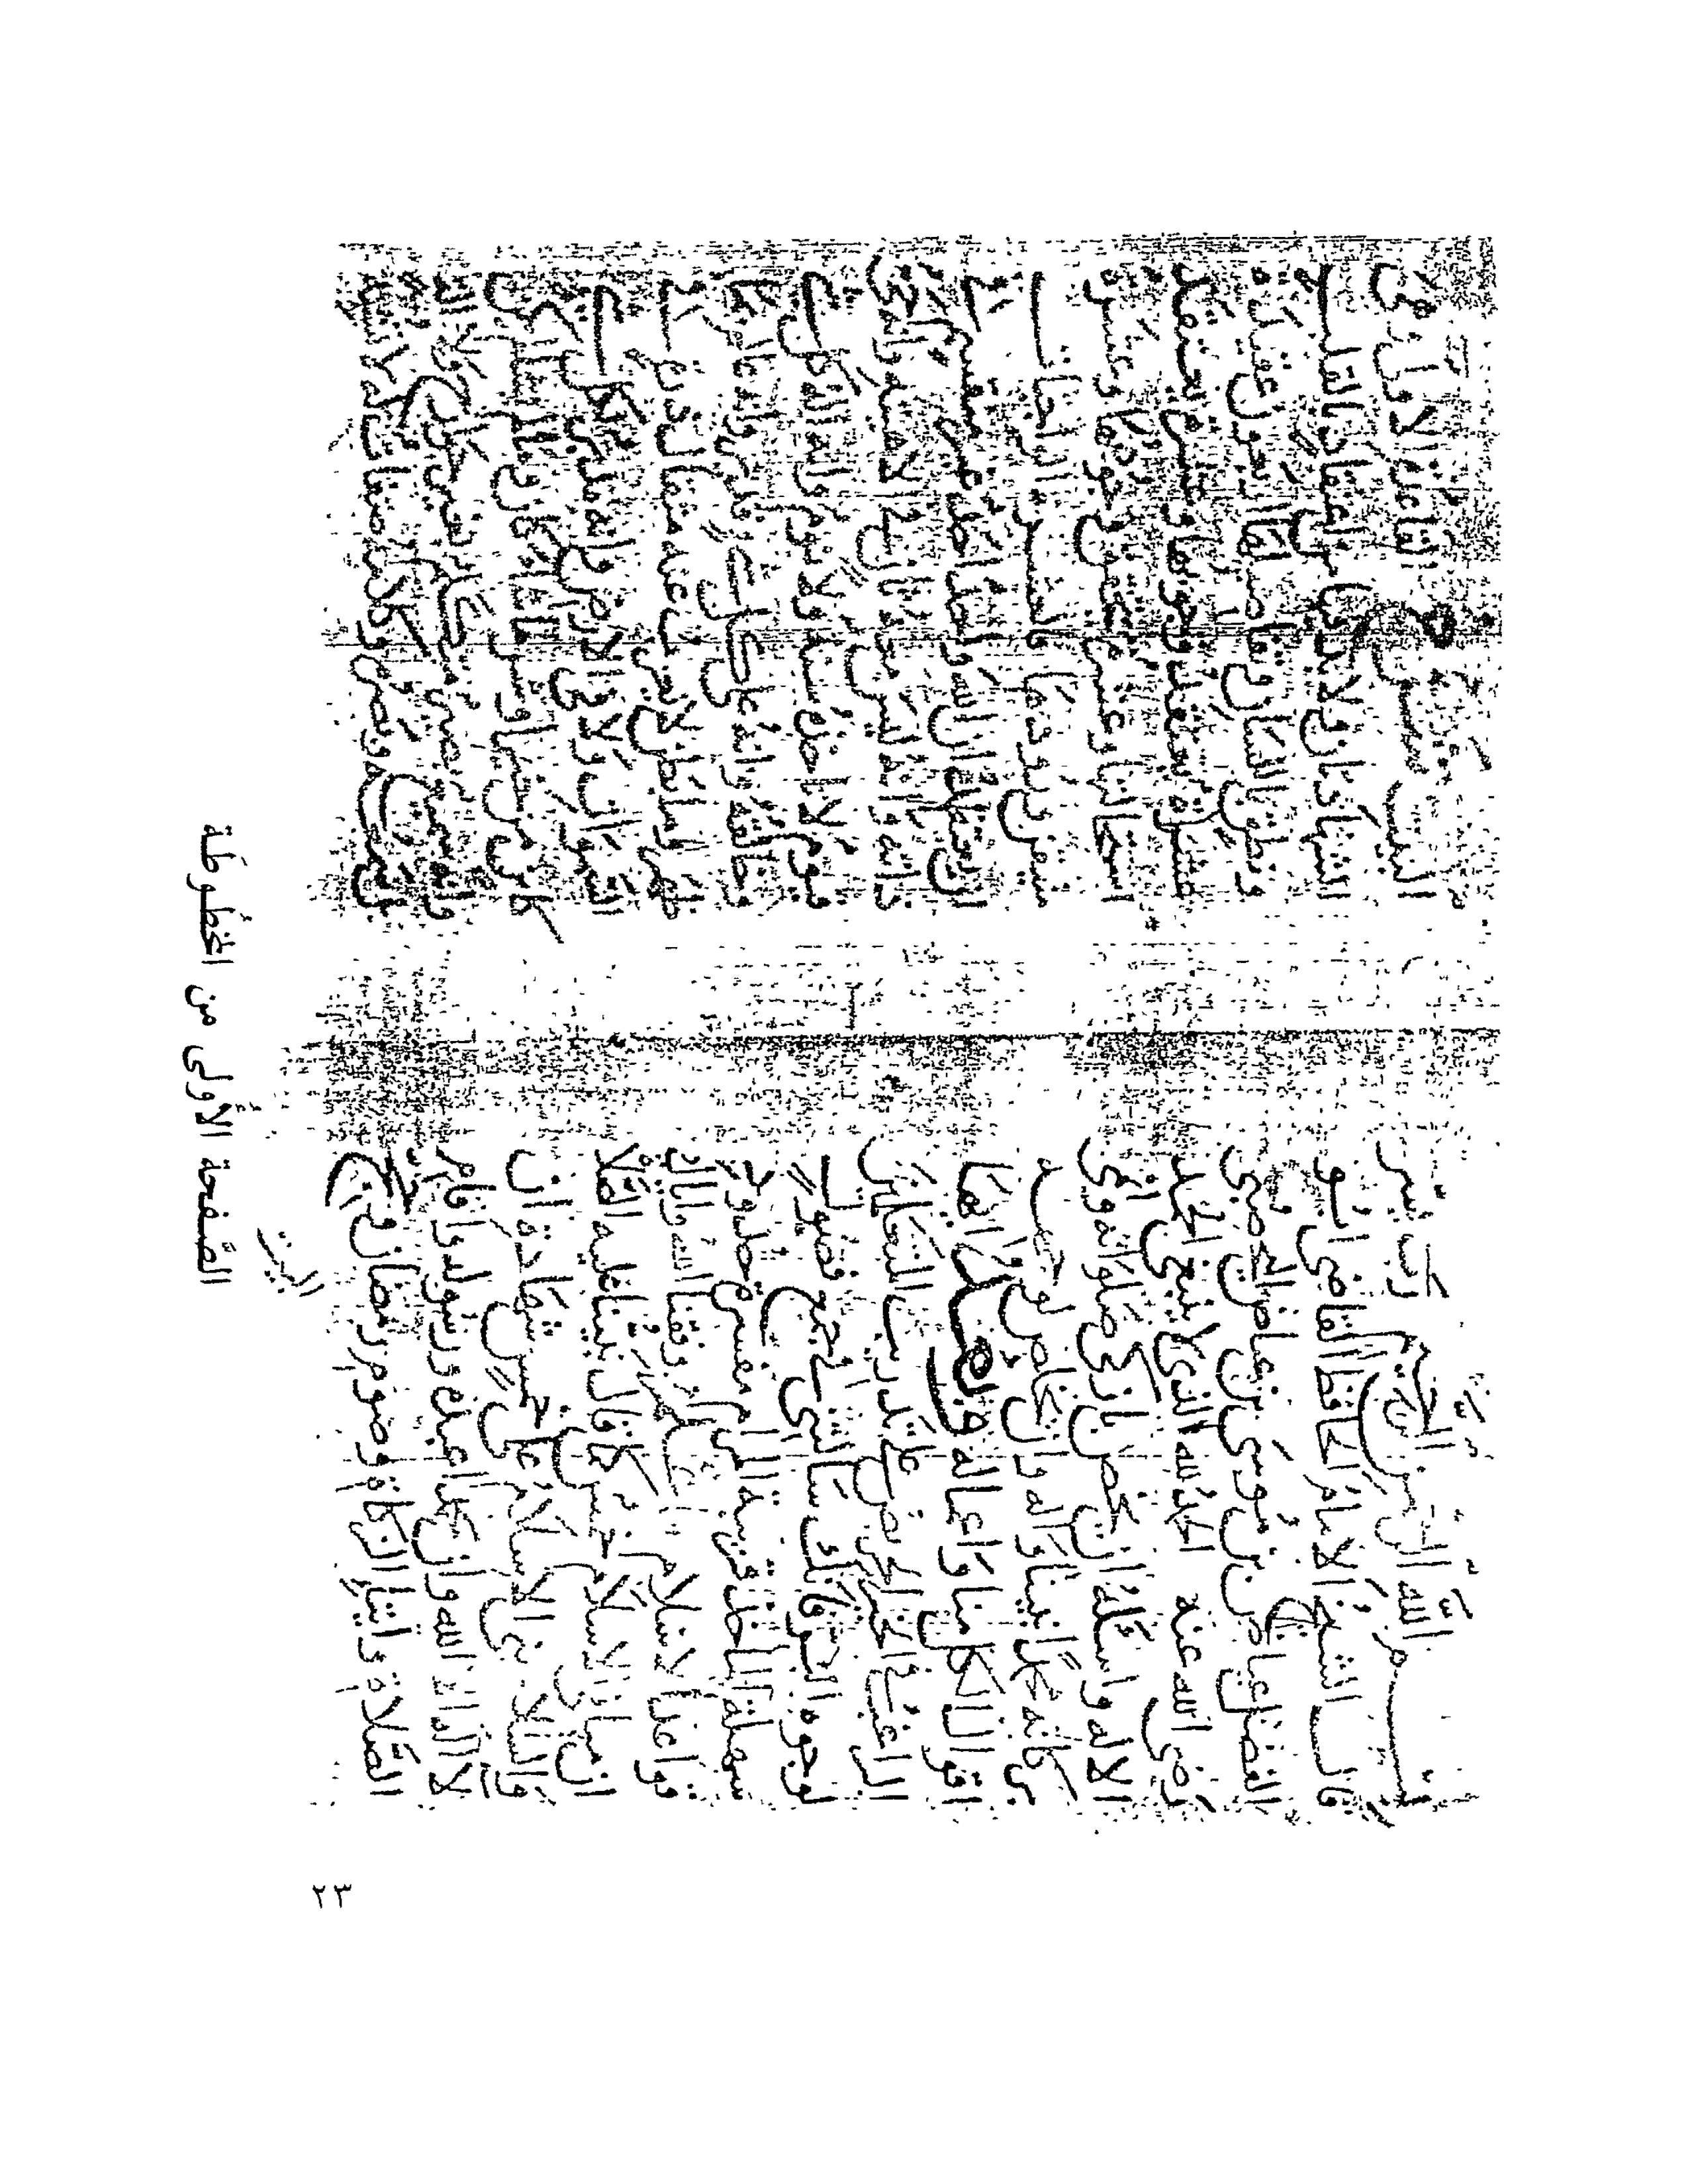 بسم الله الرحمن الرحيم رب يسر
قال الشيخ الامام الحافظ القاضي ابو
الفضل عياض بن موسى بن عياض اليحصبي
رضي الله عنه الحمد لله الذي لا ينبغي الحمد
الا له واسئله ان يخص بازكى صلواته
محمدا نبينا وآله وان يخلص لوجهه
اقوالنا واعمالنا ايها
الراغب في الخير الحريص على تدريب المتعلمين
لوجوه البر فانك سالتني في جمع فصول
سهلة الماخذ قريبة المرام مفسرة حدود
قواعد الاسلام اعلم وفقنا الله واياك
ان مباني الاسلام خمس كما قال نبينا عليه الصلاة
والسلام بني الاسلام على خمس شهادة ان
لا اله الا الله وان محمدا عبده ورسوله واقام
الصلاة وايتاء الزكاة وصوم رمضان وحج
البيت
البيت القاعدة الاولى وهي
الشهادتان ولا بد من اعتقاد بالقلب
ونطق باللسان وتفاصيلها اربعون عقيدة
عشرة يعتقد وجوبها وعشرة يعتقد
استحالتها وعشرة يتحقق وجودها وعشرة
متيقن ورودها فالعشرة الواجبات
ان يعتقد ان الله واحد غير منقسم في
ذاته وانه ليس معه ثان في الاهيته وانه حي
قيوم لا تاخذه سنة ولا نوم وانه اله كل شيء
وخالقه وانه على كل شيء قدير وانه عالم بما
ظهر وما بطن لا يعزب عنه مثقال ذرة في
السموات ولا في الارض وانه مريد لكل
كائن من خير او شر ما شاء كان وما لم يشا لم يكن
وانه سميع بصير متكلم بغير جارحة ولا آلة
بل سمعه وبصره وكلامه صفات له لا تشبه
الصفحة الأولى من المخطوطة
٢٣